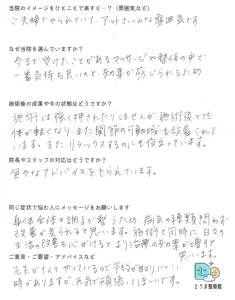 当院のイメージをひとことで表すと…？（雰囲気など）
ご夫婦でやられていて、アットホームな雰囲気です
なぜ当院を選んでいますか？
今まで受けたことがあるマッサージや整体の中で
一番気持ち良いのと、効果が感じられるため
施術後の成果や今の状態はどうですか？
施術は強く押されたりはせんが施術後とても
体が軽くなり、また関節の可動域も改善されて
います。また、リラックスするのにも役立っています。
院長やスタッフの対応はどうですか？
色々なアドバイスをもらえています。
同じ症状で悩む人にメッセージをお願いします
身体全体の調子が整うため、病気の種類問わず
改善が見られると思います。施術と同時に日々の
生活の改善も心がけるとより治療の効果が増すと
思います。
ご意見・ご要望・アドバイスなど
先生がイイやっているので予約が取りにくい
時がありますが、元気で頑張ってほしいです。
とうま整骨院